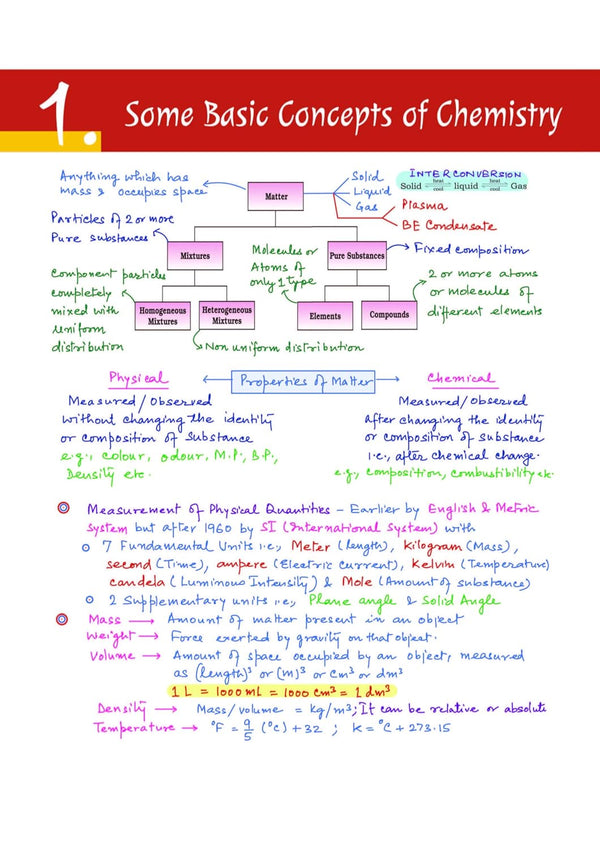 1. Some Basic Concepts of Chemistry
Anything which has
mass & occupies space
Matter
Solid
Liquid
Gas
Plasma
BE Condensate
INTERCONVERSION
Solid ⇌ liquid ⇌ Gas
heat heat
cool cool
Particles of 2 or more
Pure substances
Mixtures
Molecules or
Atoms of
only 1 type
Pure Substances
Fixed composition
Component particles
completely
mixed with
uniform
distribution
Homogeneous
Mixtures
Heterogeneous
Mixtures
Non uniform distribution
Elements
Compounds
2 or more atoms
or molecules of
different elements
Physical ← Properties of Matter → Chemical
Measured/Observed
without changing the identity
or composition of substance
e.g., colour, odour, M.P., B.P.,
Density etc.
Measured/Observed
after changing the identity
or composition of substance
i.e., after chemical change.
e.g., composition, combustibility etc.
Measurement of Physical Quantities – Earlier by English & Metric
System but after 1960 by SI (International System) with
7 Fundamental Units i.e., Meter (length), Kilogram (Mass),
second (Time), ampere (Electric current), Kelvin (Temperature)
candela (Luminous Intensity) & Mole (Amount of substance)
2 Supplementary units i.e., Plane angle & Solid Angle
Mass → Amount of matter present in an object
Weight → Force exerted by gravity on that object.
Volume → Amount of space occupied by an object, measured
as (length)³ or (m)³ or cm³ or dm³
1 L = 1000 mL = 1000 cm³ = 1 dm³
Density → Mass/volume = kg/m³; It can be relative or absolute
Temperature → °F = 9/5 (°C) + 32 ; K = °C + 273.15